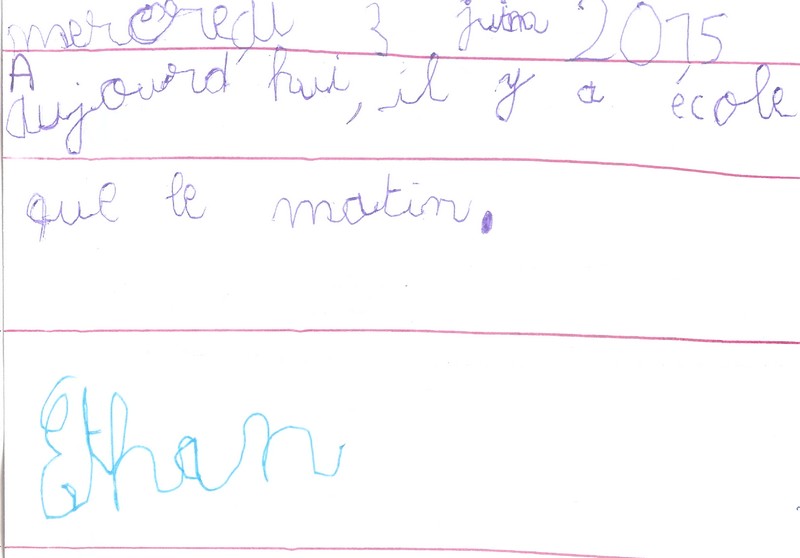 mercredi 3 juin 2015
Aujourd'hui, il y a école
que le matin.
Ethan